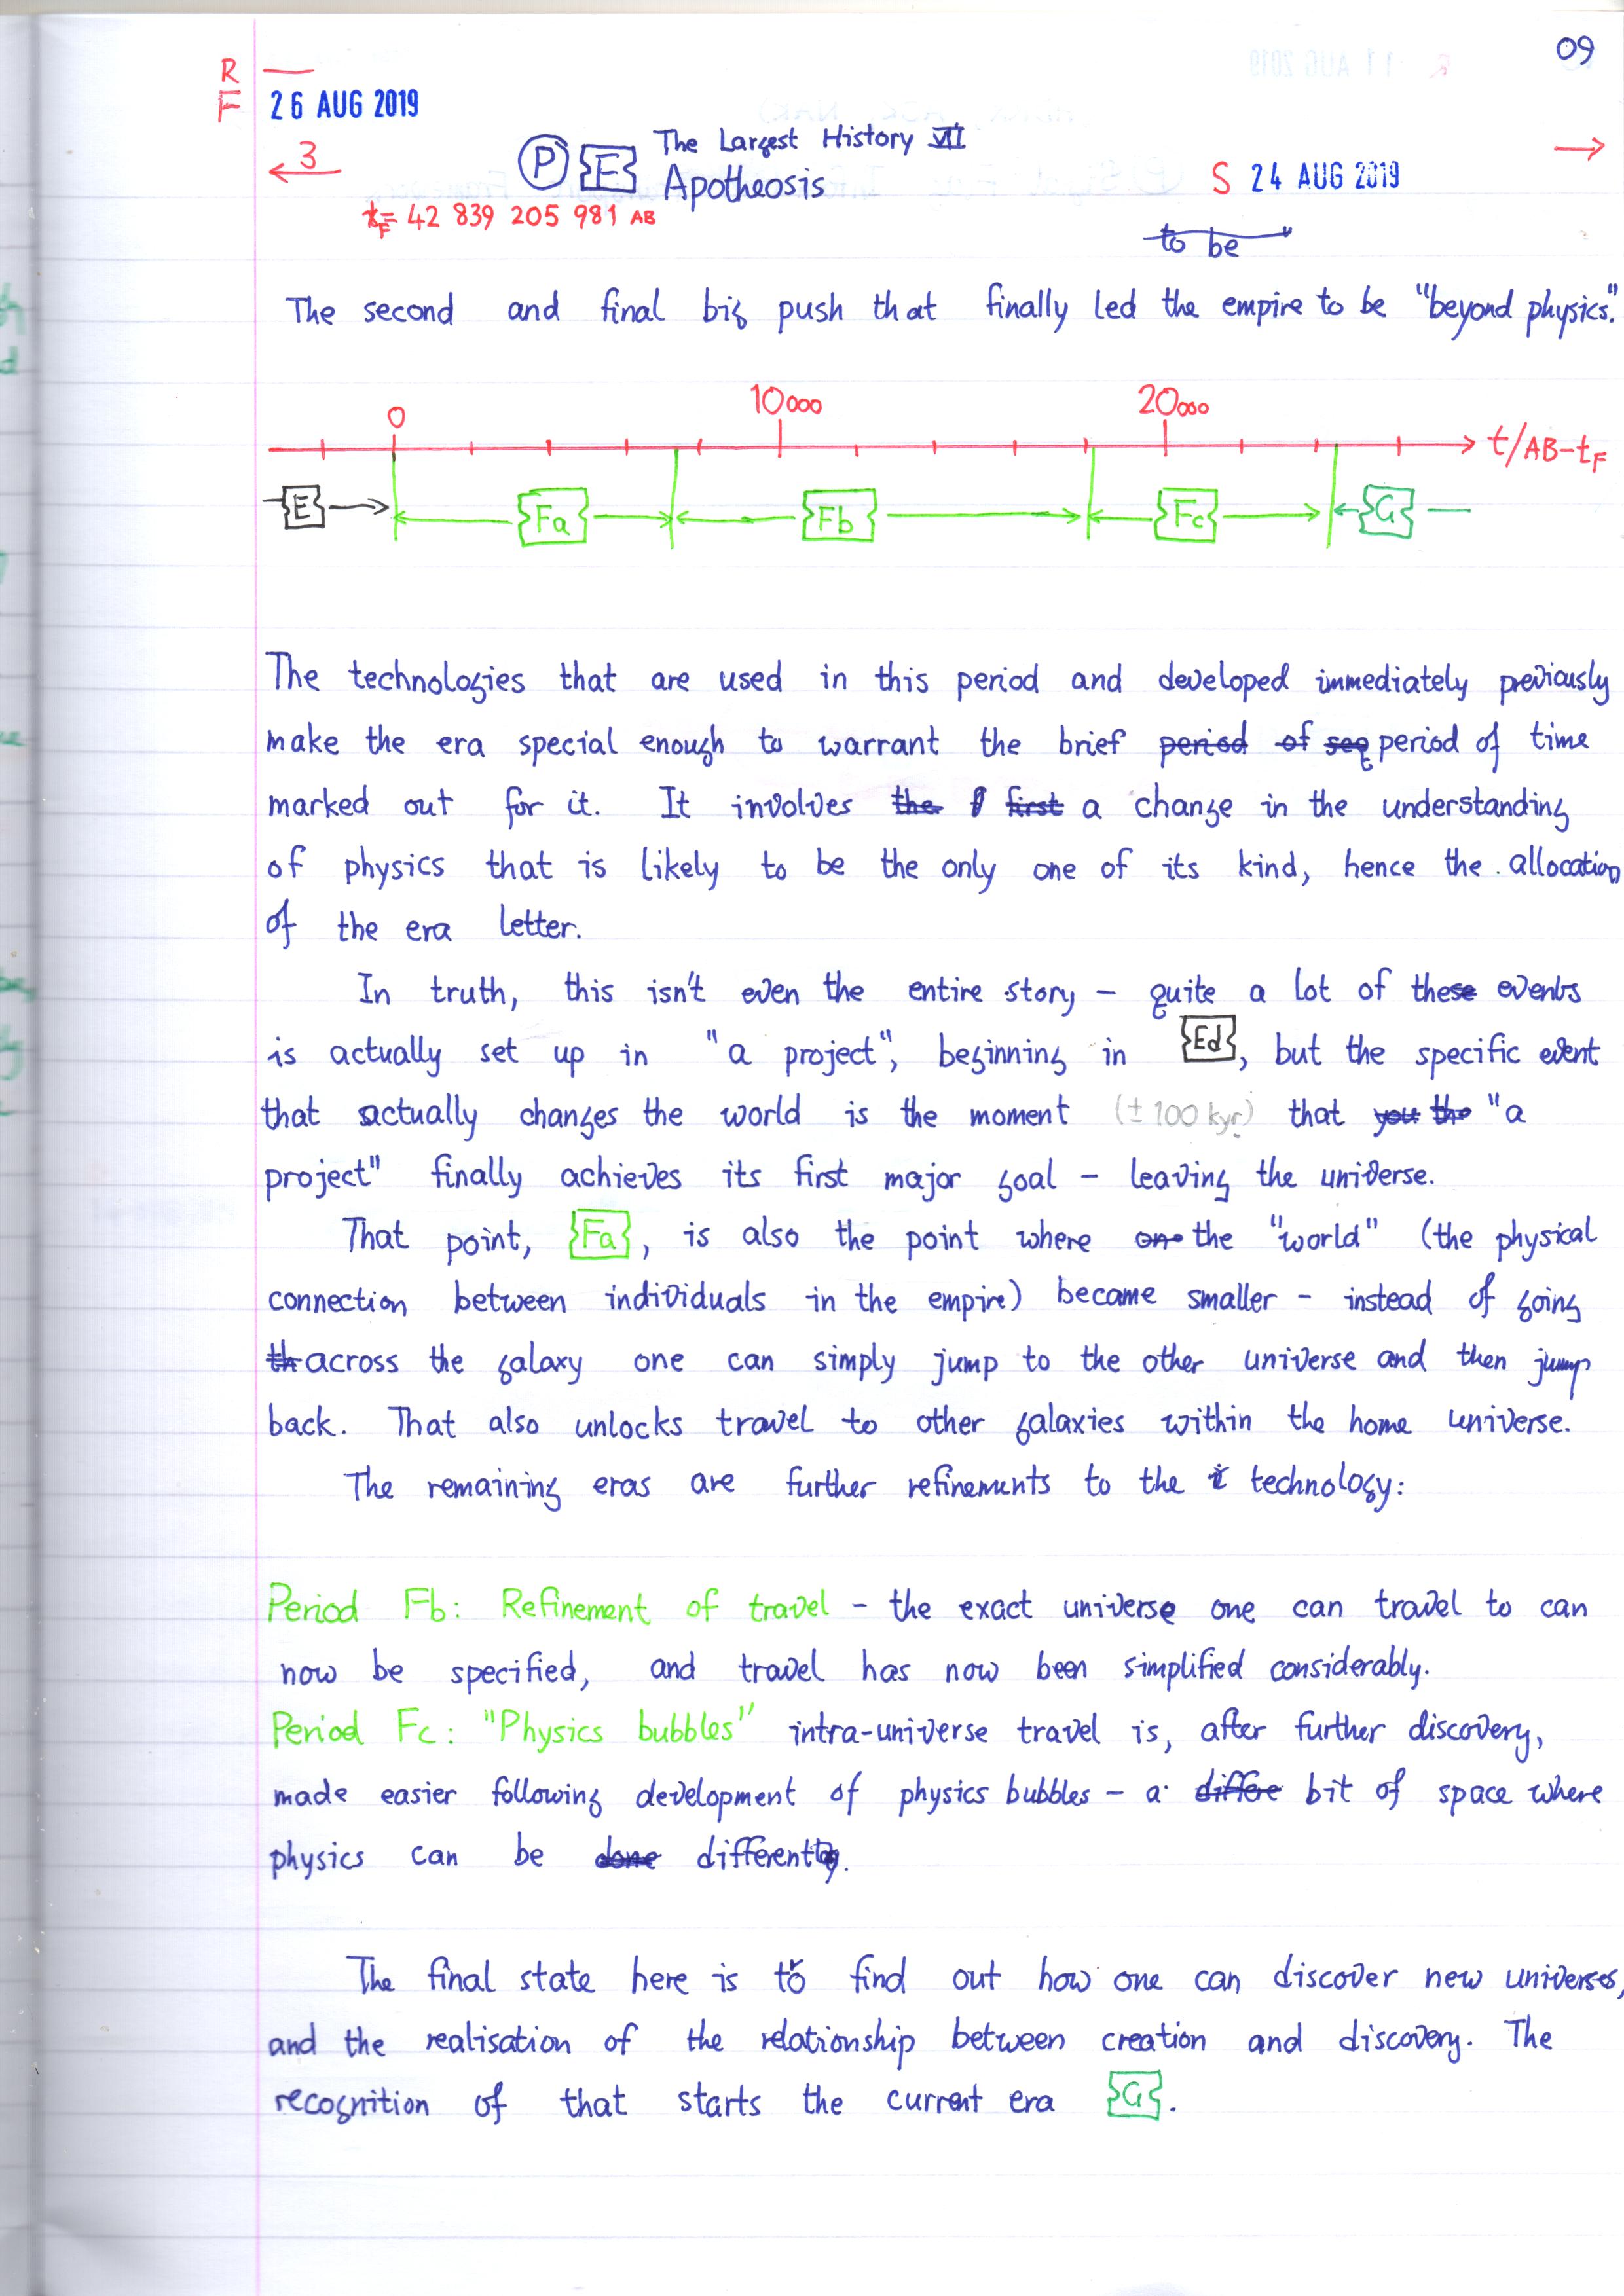 09
R
F 26 AUG 2019
3
P E The Largest History VII
Apotheosis
S 24 AUG 2019
tF= 42 839 205 981 AB
to be
The second and final big push that finally led the empire to be "beyond physics."
0 10000 20000 t/AB-tF
E Fa Fb Fc G
The technologies that are used in this period and developed immediately previously
make the era special enough to warrant the brief period of seq period of time
marked out for it. It involves the f first a change in the understanding
of physics that is likely to be the only one of its kind, hence the allocation
of the era letter.
In truth, this isn't even the entire story – quite a lot of these events
is actually set up in "a project", beginning in Ed, but the specific event
that actually changes the world is the moment (± 100 kyr) that you the "a
project" finally achieves its first major goal – leaving the universe.
That point, Fa, is also the point where one the "world" (the physical
connection between individuals in the empire) became smaller – instead of going
th across the galaxy one can simply jump to the other universe and then jump
back. That also unlocks travel to other galaxies within the home universe.
The remaining eras are further refinements to the t technology:
Period Fb: Refinement of travel – the exact universe one can travel to can
now be specified, and travel has now been simplified considerably.
Period Fc: "Physics bubbles" intra-universe travel is, after further discovery,
made easier following development of physics bubbles – a differe bit of space where
physics can be done different.
The final state here is to find out how one can discover new universes,
and the realisation of the relationship between creation and discovery. The
recognition of that starts the current era G.